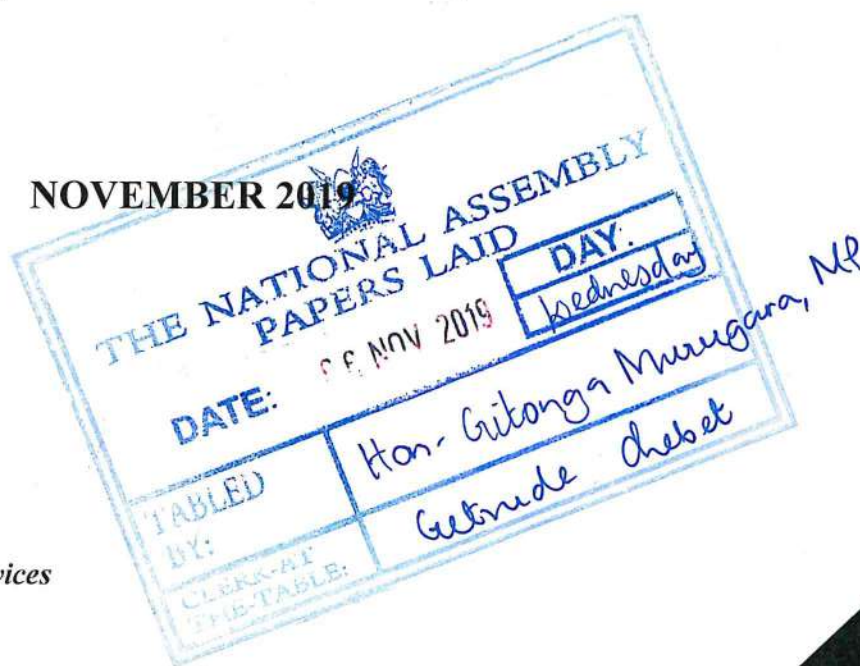 NOVEMBER 2019
THE NATIONAL ASSEMBLY
PAPERS LAID
DAY:
Wednesday
DATE: 06 NOV 2019
TABLED BY: Hon. Gitonga Murugara, MP
CLERK-AT THE-TABLE: Getrude Chebet
vices